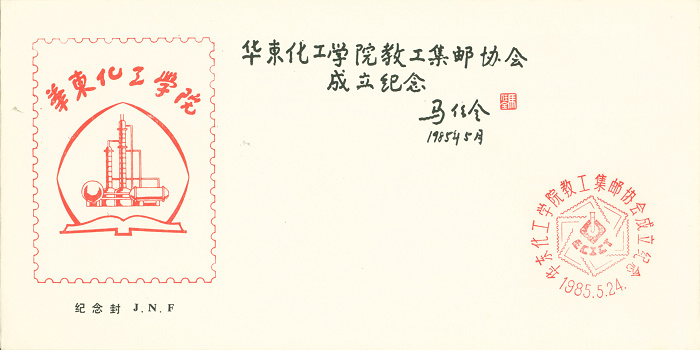 華東化工学院
纪念封 J.N.F
华東化工学院教工集邮协会
成立纪念
1985年5月
华东化工学院教工集邮协会成立纪念
ECICT
1985.5.24.